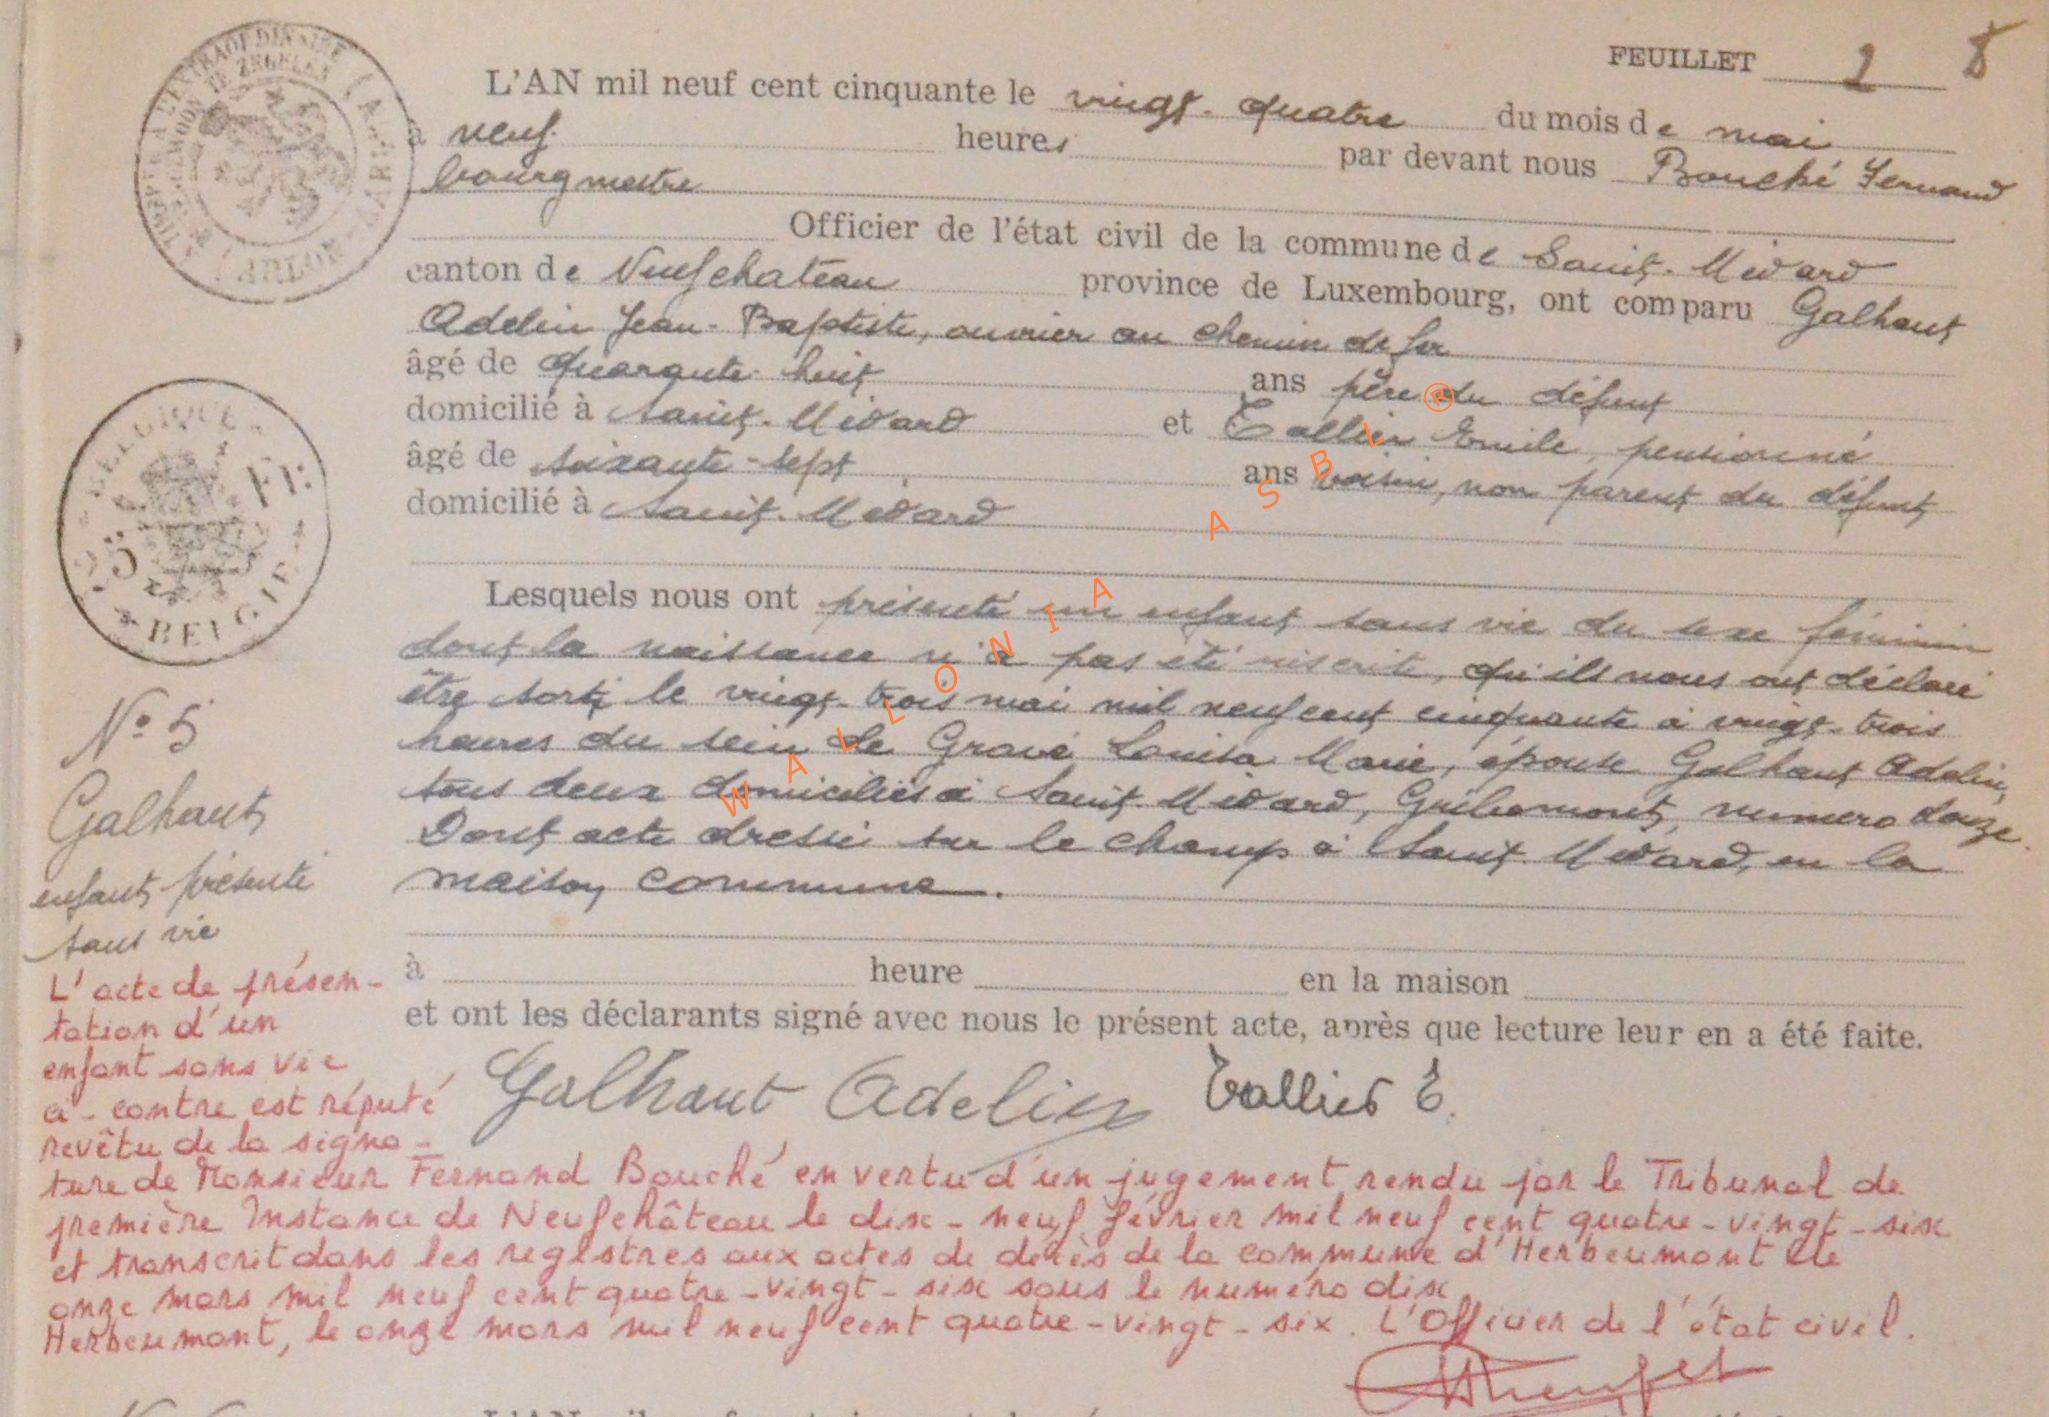 FEUILLET 2 8
L'AN mil neuf cent cinquante le vingt-quatre du mois de mai
à neuf heures par devant nous Bouché Fernand
bourgmestre
Officier de l'état civil de la commune de Saint-Médard
canton de Neufchateau province de Luxembourg, ont comparu Galhaut
Adelin Jean-Baptiste, ouvrier au chemin de fer
âgé de quarante-huit ans père du défunt
domicilié à Saint-Médard et Tallier Emile, pensionné
âgé de soixante-sept ans voisin, non parent du défunt
domicilié à Saint-Médard
Lesquels nous ont présenté un enfant sans vie du sexe féminin
dont la naissance n'a pas été inscrite, qu'ils nous ont déclaré
être sorti le vingt-trois mai mil neuf cent cinquante à vingt-trois
heures du sein de Gravé Louisa Marie, épouse Galhaut Adelin,
tous deux domiciliés à Saint-Médard, Gribomont, numéro douze.
Dont acte dressé sur le champ à Saint-Médard, en la
maison commune.
à heure en la maison
et ont les déclarants signé avec nous le présent acte, après que lecture leur en a été faite.
Galhaut Adelin Tallier E.
N° 5
Galhaut
enfant présenté
sans vie
L'acte de présen-
tation d'un
enfant sans vie
ci-contre est réputé
revêtu de la signa-
ture de Monsieur Fernand Bouché en vertu d'un jugement rendu par le Tribunal de
première Instance de Neufchâteau le dix-neuf février mil neuf cent quatre-vingt-six
et transcrit dans les registres aux actes de décès de la commune d'Herbeumont le
onze mars mil neuf cent quatre-vingt-six sous le numéro dix
Herbeumont, le onze mars mil neuf cent quatre-vingt-six. L'Officier de l'état civil.
BELGIQUE
5 FR
BELGIE
ARLON
WALLONIA ASBL ®